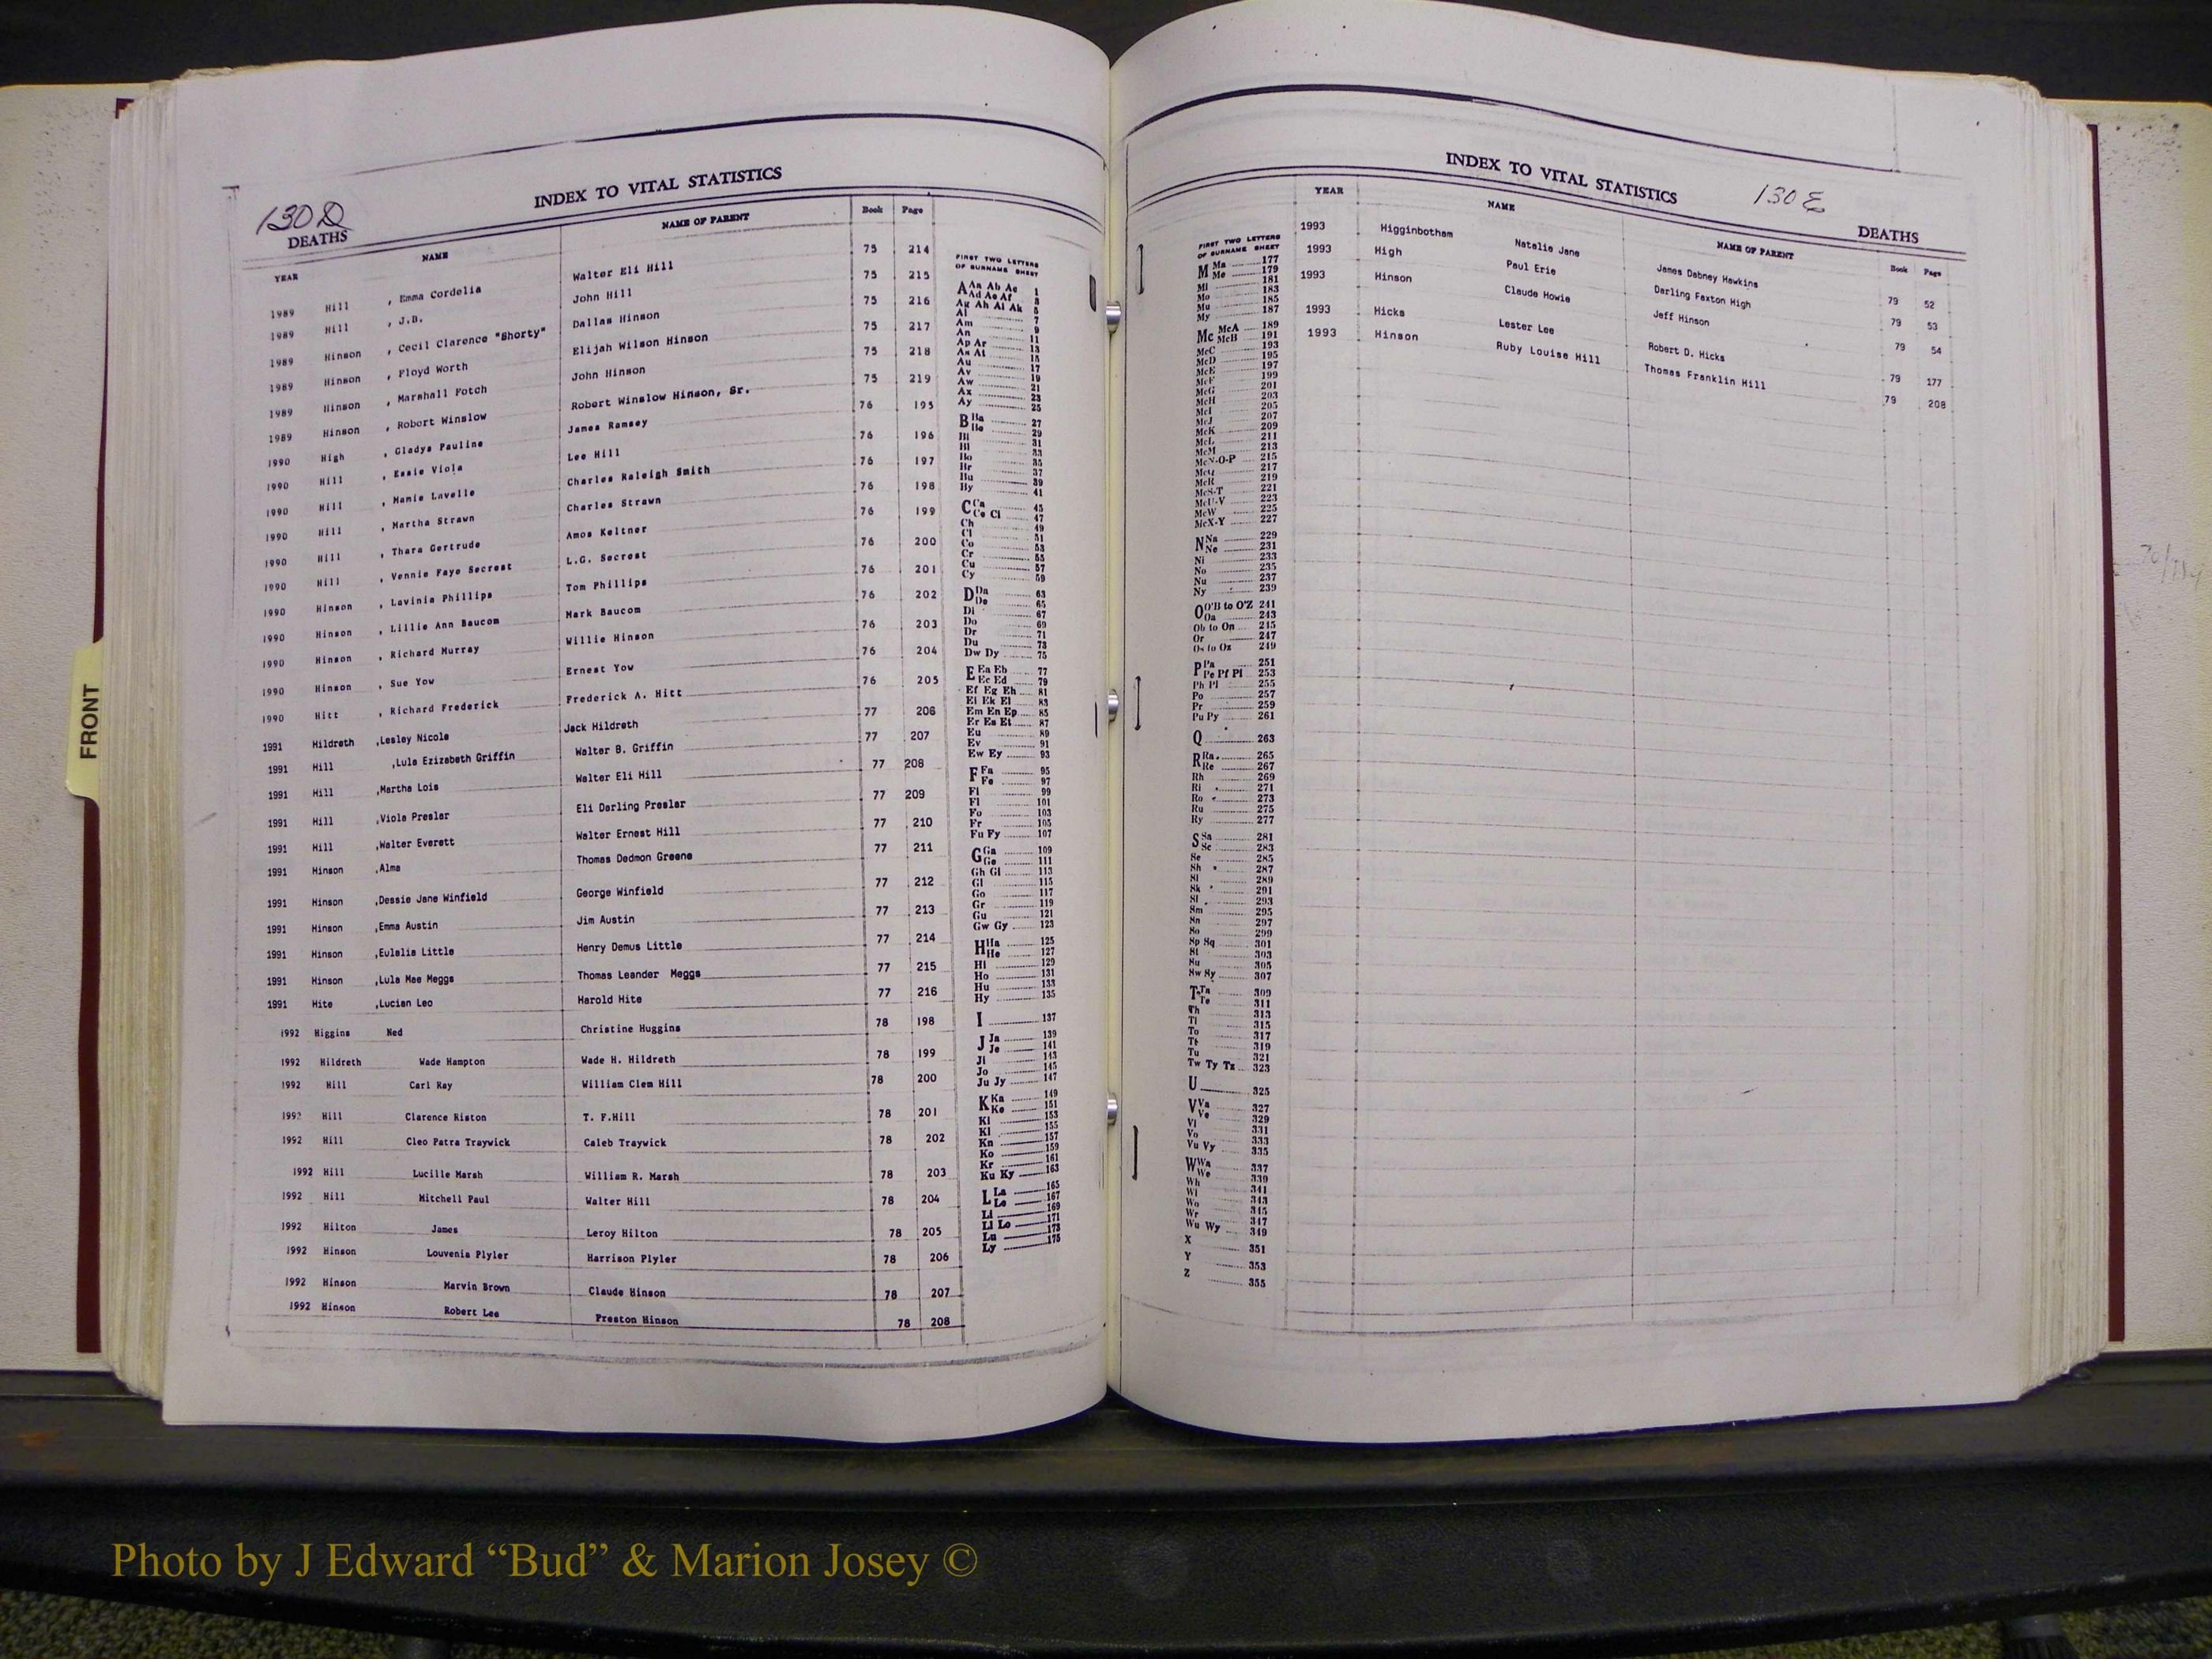 INDEX TO VITAL STATISTICS
130 D
DEATHS
YEAR NAME NAME OF PARENT Book Page
1989 Hill , Emma Cordelia Walter Eli Hill 75 214
1989 Hill , J.B. John Hill 75 215
1989 Hinson , Cecil Clarence "Shorty" Dallas Hinson 75 216
1989 Hinson , Floyd Worth Elijah Wilson Hinson 75 217
1989 Hinson , Marshall Fotch John Hinson 75 218
1989 Hinson , Robert Winslow Robert Winslow Hinson, Sr. 75 219
1990 High , Gladys Pauline James Ramsey 76 195
1990 Hill , Essie Viola Lee Hill 76 196
1990 Hill , Mamie Lavelle Charles Raleigh Smith 76 197
1990 Hill , Martha Strawn Charles Strawn 76 198
1990 Hill , Thara Gertrude Amos Keltner 76 199
1990 Hill , Vennie Faye Secrest L.G. Secrest 76 200
1990 Hinson , Lavinia Phillips Tom Phillips 76 201
1990 Hinson , Lillie Ann Baucom Mark Baucom 76 202
1990 Hinson , Richard Murray Willie Hinson 76 203
1990 Hinson , Sue Yow Ernest Yow 76 204
1990 Hitt , Richard Frederick Frederick A. Hitt 76 205
1991 Hildreth ,Lesley Nicole Jack Hildreth 77 206
1991 Hill ,Lula Ezizabeth Griffin Walter B. Griffin 77 207
1991 Hill ,Martha Lois Walter Eli Hill 77 208
1991 Hill ,Viola Preslar Eli Darling Preslar 77 209
1991 Hill ,Walter Everett Walter Ernest Hill 77 210
1991 Hinson ,Alma Thomas Dedmon Greene 77 211
1991 Hinson ,Dessie Jane Winfield George Winfield 77 212
1991 Hinson ,Emma Austin Jim Austin 77 213
1991 Hinson ,Eulalia Little Henry Demus Little 77 214
1991 Hinson ,Lula Mae Meggs Thomas Leander Meggs 77 215
1991 Hite ,Lucian Leo Harold Hite 77 216
1992 Higgins Ned Christine Huggins 78 198
1992 Hildreth Wade Hampton Wade H. Hildreth 78 199
1992 Hill Carl Ray William Clem Hill 78 200
1992 Hill Clarence Riston T. F.Hill 78 201
1992 Hill Cleo Patra Traywick Caleb Traywick 78 202
1992 Hill Lucille Marsh William R. Marsh 78 203
1992 Hill Mitchell Paul Walter Hill 78 204
1992 Hilton James Leroy Hilton 78 205
1992 Hinson Louvenia Plyler Harrison Plyler 78 206
1992 Hinson Marvin Brown Claude Hinson 78 207
1992 Hinson Robert Lee Preston Hinson 78 208
FIRST TWO LETTERS
OF SURNAME SHEET
A Aa Ab Ac 1
Ad Ae Af 3
Ag Ah Ai Ak 5
Al 7
Am 9
An 11
Ap Ar 13
As At 15
Au 17
Av 19
Aw 21
Ax 23
Ay 25
B Ba 27
Be 29
Bi 31
Bl 33
Bo 35
Br 37
Bu 39
By 41
C Ca 45
Ce Ci 47
Ch 49
Cl 51
Co 53
Cr 55
Cu 57
Cy 59
D Da 63
De 65
Di 67
Do 69
Dr 71
Du 73
Dw Dy 75
E Ea Eb 77
Ec Ed 79
Ef Eg Eh 81
Ei Ek El 83
Em En Ep 85
Er Es Et 87
Eu 89
Ev 91
Ew Ey 93
F Fa 95
Fe 97
Fi 99
Fl 101
Fo 103
Fr 105
Fu Fy 107
G Ga 109
Ge 111
Gh Gi 113
Gl 115
Go 117
Gr 119
Gu 121
Gw Gy 123
H Ha 125
He 127
Hi 129
Ho 131
Hu 133
Hy 135
I 137
J Ja 139
Je 141
Ji 143
Jo 145
Ju Jy 147
K Ka 149
Ke 151
Ki 153
Kl 155
Kn 157
Ko 159
Kr 161
Ku Ky 163
L La 165
Le 167
Li 169
Ll Lo 171
Lu 173
Ly 175
INDEX TO VITAL STATISTICS
130 E
DEATHS
YEAR NAME NAME OF PARENT Book Page
1993 Higginbotham Natalie Jane James Dabney Hawkins 79 52
1993 High Paul Erie Darling Faxton High 79 53
1993 Hinson Claude Howie Jeff Hinson 79 54
1993 Hicks Lester Lee Robert D. Hicks 79 177
1993 Hinson Ruby Louise Hill Thomas Franklin Hill 79 208
FIRST TWO LETTERS
OF SURNAME SHEET
M Ma 177
Me 179
Mi 181
Mo 183
Mu 185
My 187
Mc McA 189
McB 191
McC 193
McD 195
McE 197
McF 199
McG 201
McH 203
McI 205
McJ 207
McK 209
McL 211
McM 213
McN-O-P 215
McQ 217
McR 219
McS-T 221
McU-V 223
McW 225
McX-Y 227
N Na 229
Ne 231
Ni 233
No 235
Nu 237
Ny 239
O O'B to O'Z 241
Oa 243
Ob to On 245
Or 247
Os to Oz 249
P Pa 251
Pe Pf Pi 253
Ph Pl 255
Po 257
Pr 259
Pu Py 261
Q 263
R Ra 265
Re 267
Rh 269
Ri 271
Ro 273
Ru 275
Ry 277
S Sa 281
Sc 283
Se 285
Sh 287
Si 289
Sk 291
Sl 293
Sm 295
Sn 297
So 299
Sp Sq 301
St 303
Su 305
Sw Sy 307
T Ta 309
Te 311
Th 313
Ti 315
To 317
Tr 319
Tu 321
Tw Ty Tz 323
U 325
V Va 327
Ve 329
Vi 331
Vo 333
Vu Vy 335
W Wa 337
We 339
Wh 341
Wi 343
Wo 345
Wr 347
Wu Wy 349
X 351
Y 353
Z 355
FRONT
Photo by J Edward “Bud” & Marion Josey ©